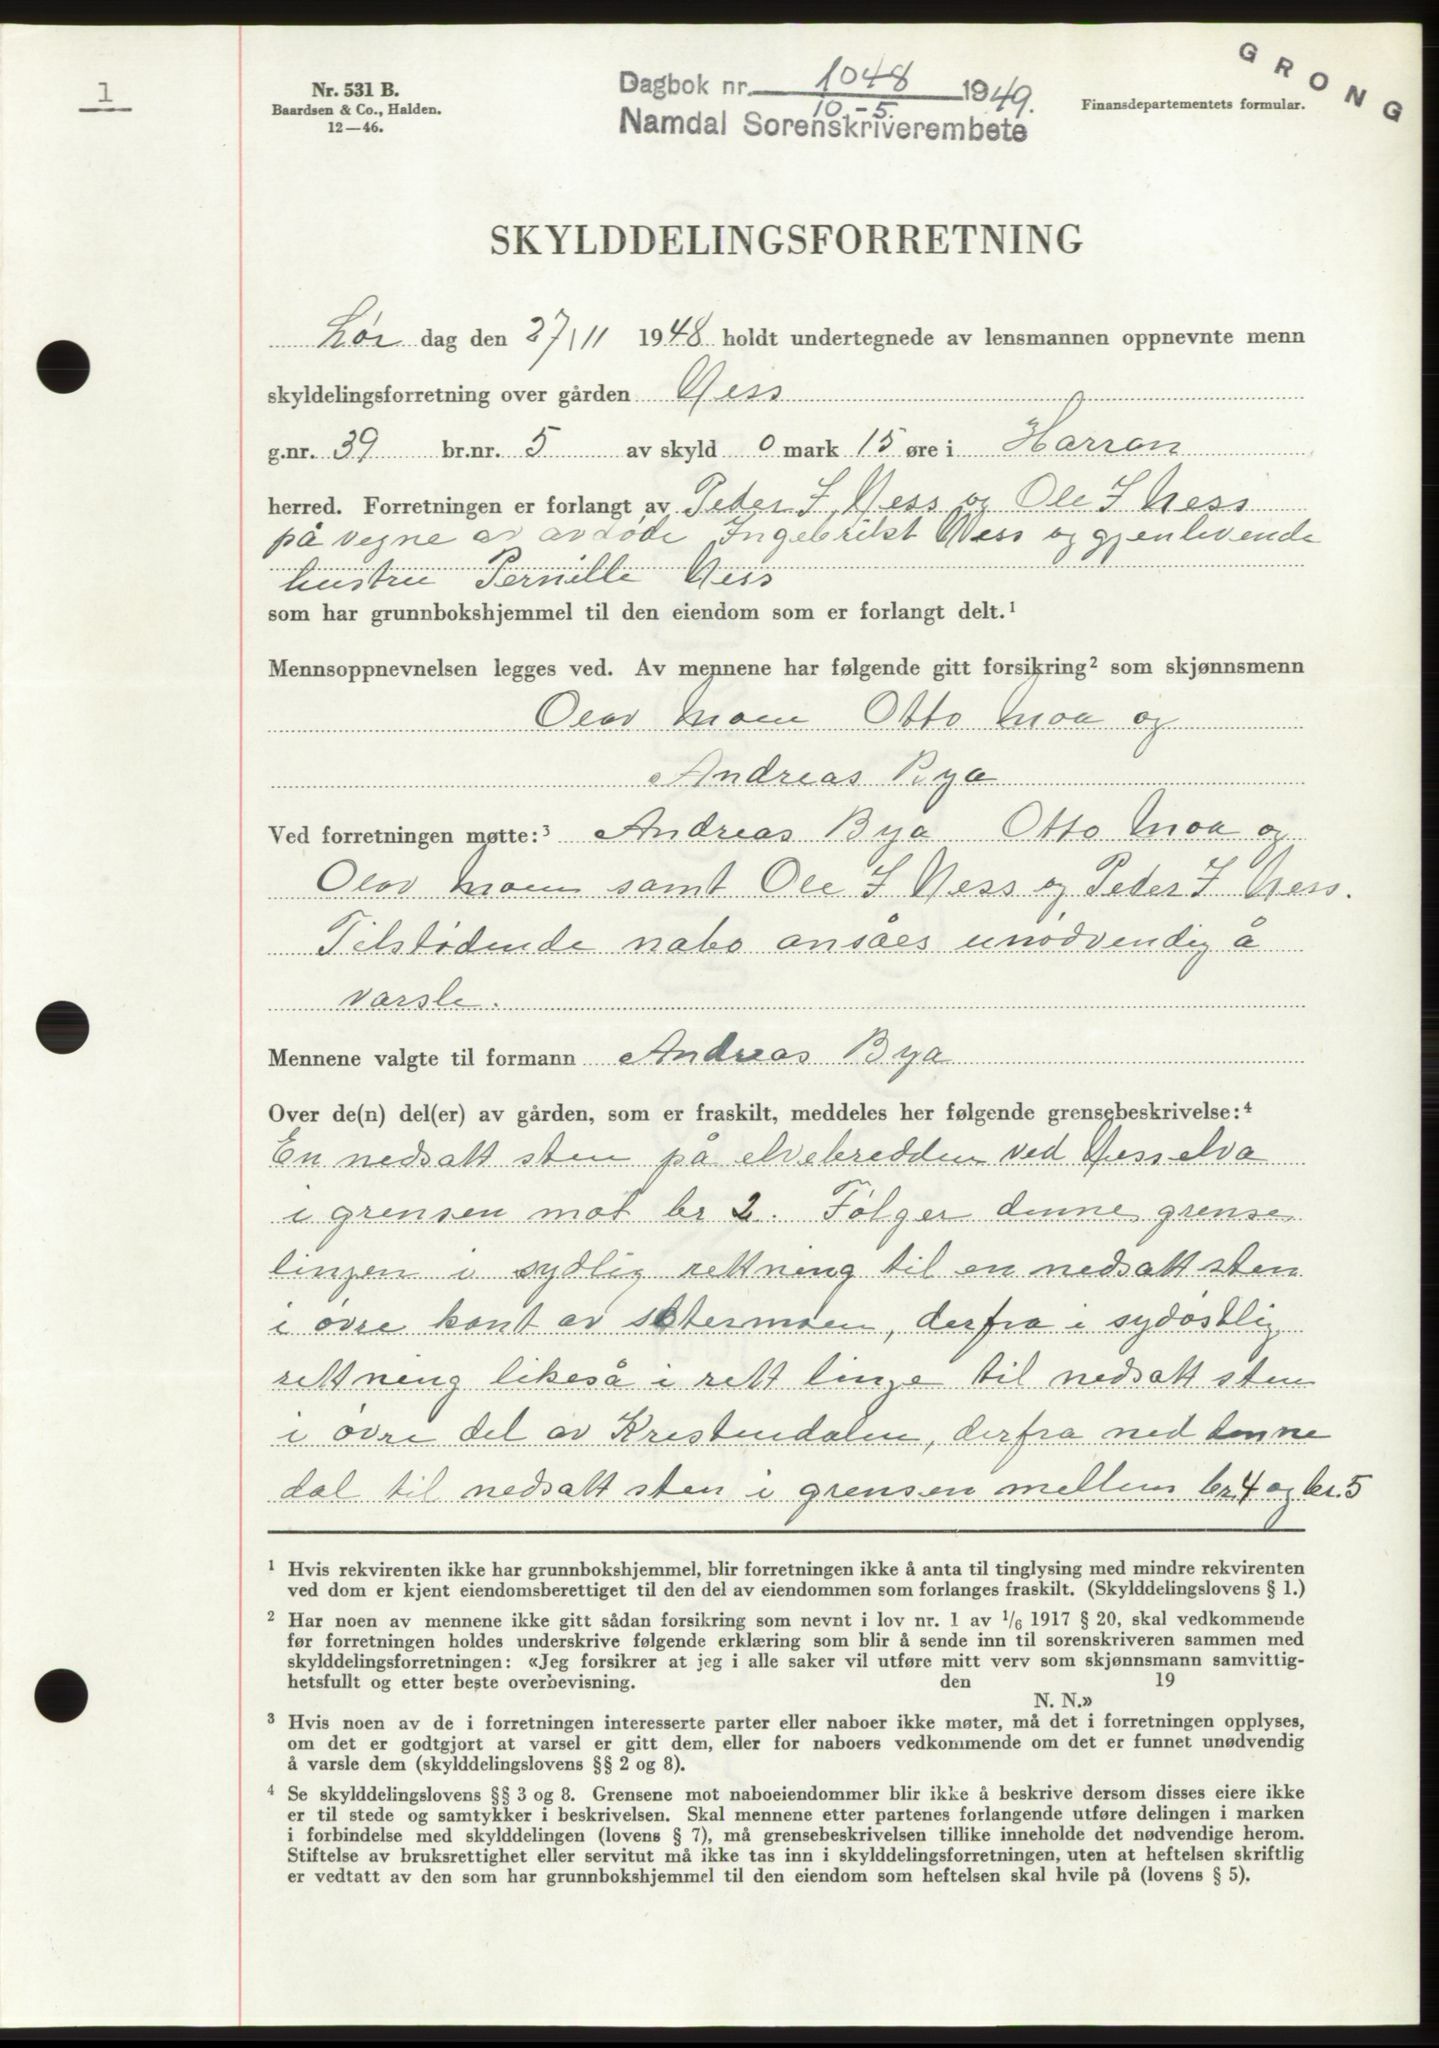 1
Nr. 531 B.
Baardsen & Co., Halden.
12—46.
Dagbok nr. 1048 1949.
10.-5.
Namdal Sorenskriverembete
Finansdepartementets formular.
GRONG
SKYLDDELINGSFORRETNING
Lør dag den 27/11 1948 holdt undertegnede av lensmannen oppnevnte menn
skyldelingsforretning over gården Ness
g.nr. 39 br.nr. 5 av skyld 0 mark 15 øre i Harran
herred. Forretningen er forlangt av Peder I. Ness og Ole I Ness
på vegne av avdøde Ingebrikt Ness og gjenlevende
hustru Pernille Ness
som har grunnbokshjemmel til den eiendom som er forlangt delt.¹
Mennsoppnevnelsen legges ved. Av mennene har følgende gitt forsikring² som skjønnsmenn
Olav Moen Otto Moa og
Andreas Bya
Ved forretningen møtte:³ Andreas Bya Otto Moa og
Olav Moen samt Ole I Ness og Peder I Ness.
Tilstødende nabo ansåes unødvendig å
varsle.
Mennene valgte til formann Andreas Bya
Over de(n) del(er) av gården, som er fraskilt, meddeles her følgende grensebeskrivelse:⁴
En nedsatt sten på elvebredden ved Nesselva
i grensen mot br 2. Følger denne grense
linjen i sydlig rettning til en nedsatt sten
i øvre kant av setermoen, derfra i sydøstlig
rettning likeså i rett linje til nedsatt sten
i øvre del av Kristendalen, derfra ned denne
dal til nedsatt sten i grensen mellem br. 4 og br. 5
¹ Hvis rekvirenten ikke har grunnbokshjemmel, blir forretningen ikke å anta til tinglysing med mindre rekvirenten
ved dom er kjent eiendomsberettiget til den del av eiendommen som forlanges fraskilt. (Skylddelingslovens § 1.)
² Har noen av mennene ikke gitt sådan forsikring som nevnt i lov nr. 1 av 1/6 1917 § 20, skal vedkommende
før forretningen holdes underskrive følgende erklæring som blir å sende inn til sorenskriveren sammen med
skylddelingsforretningen: «Jeg forsikrer at jeg i alle saker vil utføre mitt verv som skjønnsmann samvittig-
hetsfullt og etter beste overbevisning. den 19
N. N.»
³ Hvis noen av de i forretningen interesserte parter eller naboer ikke møter, må det i forretningen opplyses,
om det er godtgjort at varsel er gitt dem, eller for naboers vedkommende om det er funnet unødvendig
å varsle dem (skylddelingslovens §§ 2 og 8).
⁴ Se skylddelingslovens §§ 3 og 8. Grensene mot naboeiendommer blir ikke å beskrive dersom disses eiere ikke
er til stede og samtykker i beskrivelsen. Skal mennene etter partenes forlangende utføre delingen i marken
i forbindelse med skylddelingen (lovens § 7), må grensebeskrivelsen tillike inneholde det nødvendige herom.
Stiftelse av bruksrettighet eller servitut må ikke tas inn i skylddelingsforretningen, uten at heftelsen skriftlig
er vedtatt av den som har grunnbokshjemmel til den eiendom som heftelsen skal hvile på (lovens § 5).